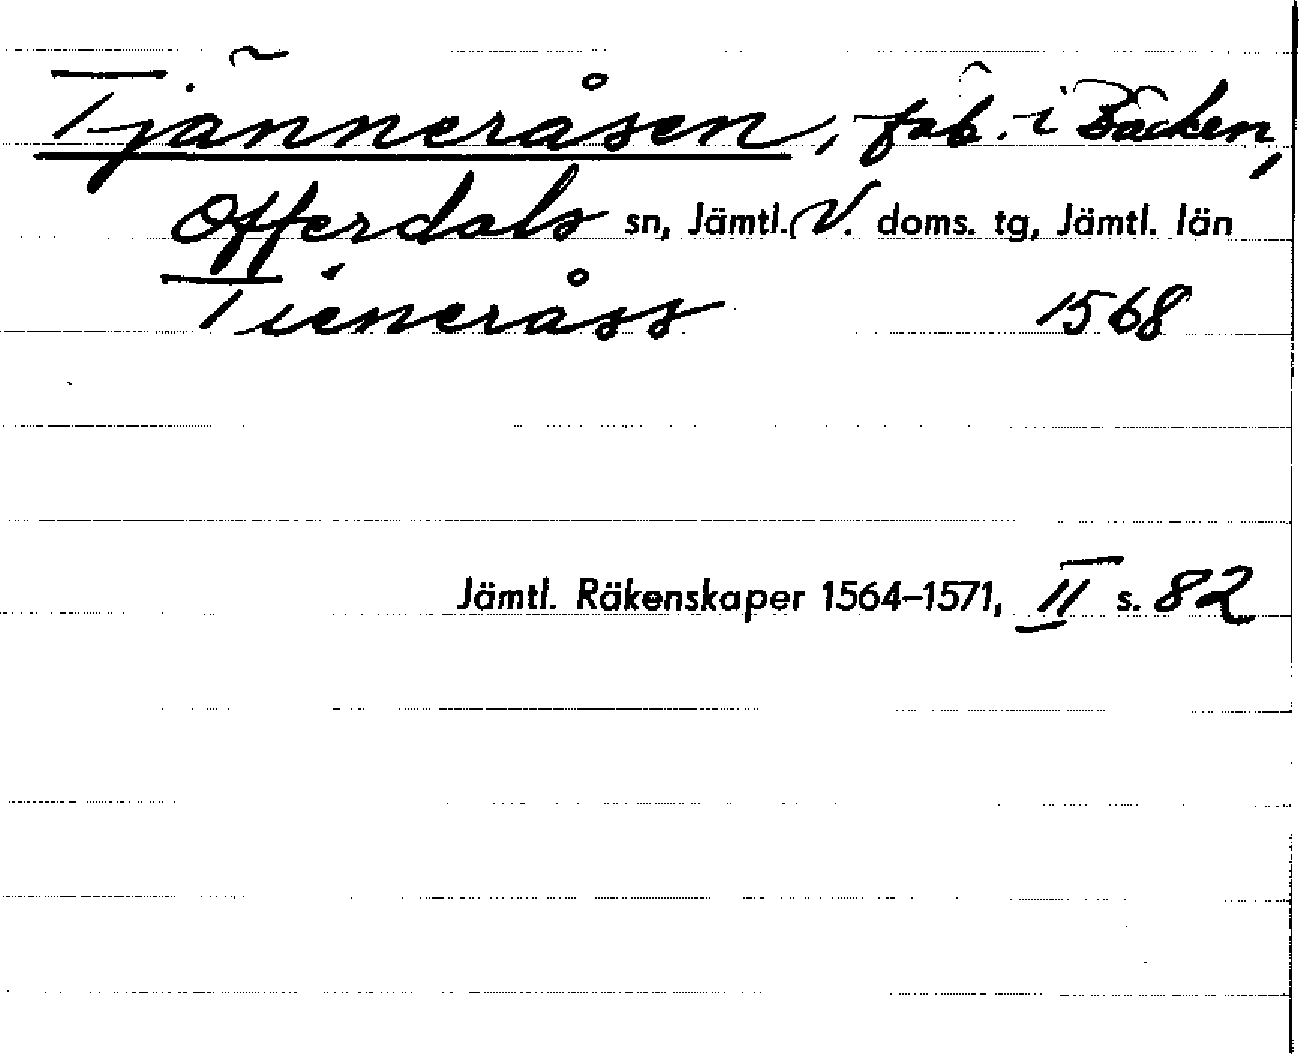 Tjänneråsen, fäb. i Bäcken,
Offerdals sn, Jämtl. V. doms. tg, Jämtl. län
Tieneråss 1568
Jämtl. Räkenskaper 1564–1571, II s. 82